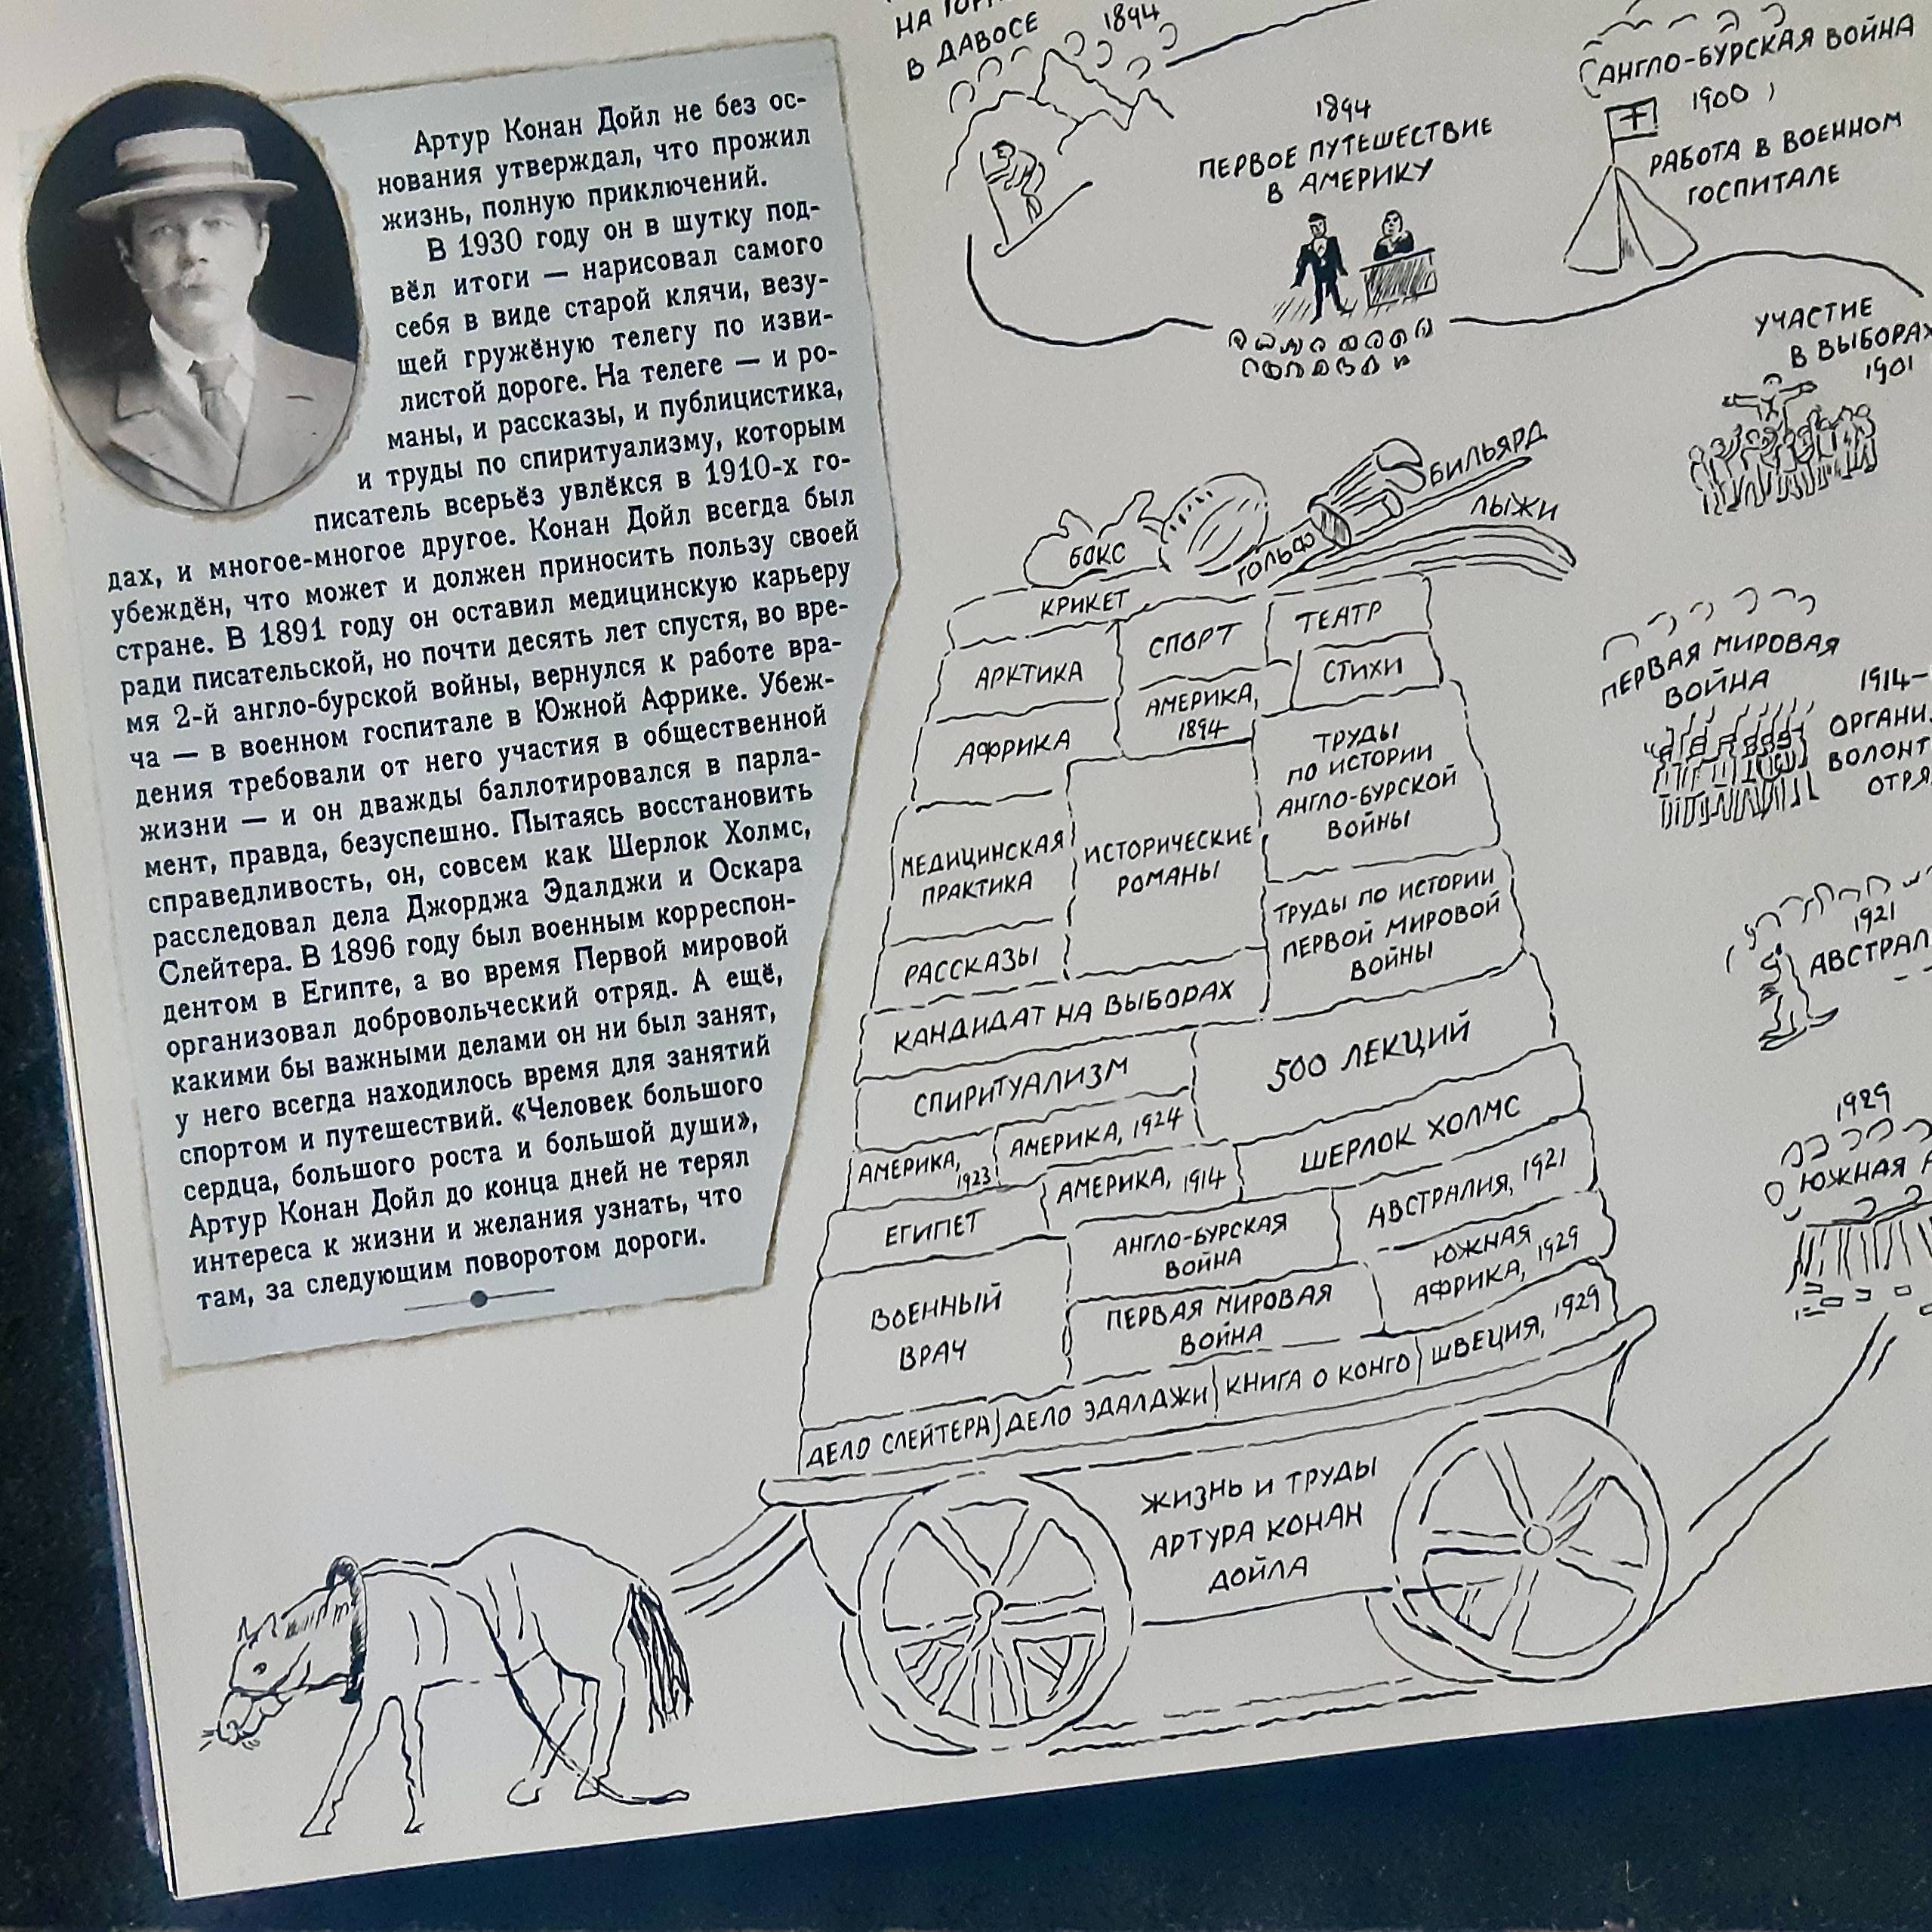 Артур Конан Дойл не без ос-
нования утверждал, что прожил
жизнь, полную приключений.
В 1930 году он в шутку под-
вёл итоги — нарисовал самого
себя в виде старой клячи, везу-
щей гружёную телегу по изви-
листой дороге. На телеге — и ро-
маны, и рассказы, и публицистика,
и труды по спиритуализму, которым
писатель всерьёз увлёкся в 1910-х го-
дах, и многое-многое другое. Конан Дойл всегда был
убеждён, что может и должен приносить пользу своей
стране. В 1891 году он оставил медицинскую карьеру
ради писательской, но почти десять лет спустя, во вре-
мя 2-й англо-бурской войны, вернулся к работе вра-
ча — в военном госпитале в Южной Африке. Убеж-
дения требовали от него участия в общественной
жизни — и он дважды баллотировался в парла-
мент, правда, безуспешно. Пытаясь восстановить
справедливость, он, совсем как Шерлок Холмс,
расследовал дела Джорджа Эдалджи и Оскара
Слейтера. В 1896 году был военным корреспон-
дентом в Египте, а во время Первой мировой
организовал добровольческий отряд. А ещё,
какими бы важными делами он ни был занят,
у него всегда находилось время для занятий
спортом и путешествий. «Человек большого
сердца, большого роста и большой души»,
Артур Конан Дойл до конца дней не терял
интереса к жизни и желания узнать, что
там, за следующим поворотом дороги.
НА
В ДАВОСЕ
1894
1894
ПЕРВОЕ ПУТЕШЕСТВИЕ
В АМЕРИКУ
АНГЛО-БУРСКАЯ ВОЙНА
1900
РАБОТА В ВОЕННОМ
ГОСПИТАЛЕ
УЧАСТИЕ
В ВЫБОРАХ
1901
ПЕРВАЯ МИРОВАЯ
ВОЙНА
1914–
ОРГАНИ
ВОЛОНТ
ОТРЯ
1921
АВСТРАЛ
1929
ЮЖНАЯ А
БОКС
ГОЛЬФ
БИЛЬЯРД
ЛЫЖИ
КРИКЕТ
СПОРТ
ТЕАТР
АРКТИКА
АМЕРИКА,
1894
СТИХИ
АФРИКА
ТРУДЫ
ПО ИСТОРИИ
АНГЛО-БУРСКОЙ
ВОЙНЫ
МЕДИЦИНСКАЯ
ПРАКТИКА
ИСТОРИЧЕСКИЕ
РОМАНЫ
ТРУДЫ ПО ИСТОРИИ
ПЕРВОЙ МИРОВОЙ
ВОЙНЫ
РАССКАЗЫ
КАНДИДАТ НА ВЫБОРАХ
СПИРИТУАЛИЗМ
500 ЛЕКЦИЙ
АМЕРИКА,
1923
АМЕРИКА, 1924
АМЕРИКА, 1914
ШЕРЛОК ХОЛМС
ЕГИПЕТ
АНГЛО-БУРСКАЯ
ВОЙНА
АВСТРАЛИЯ, 1921
ВОЕННЫЙ
ВРАЧ
ПЕРВАЯ МИРОВАЯ
ВОЙНА
ЮЖНАЯ
АФРИКА, 1929
ДЕЛО СЛЕЙТЕРА
ДЕЛО ЭДАЛДЖИ
КНИГА О КОНГО
ШВЕЦИЯ, 1929
ЖИЗНЬ И ТРУДЫ
АРТУРА КОНАН
ДОЙЛА